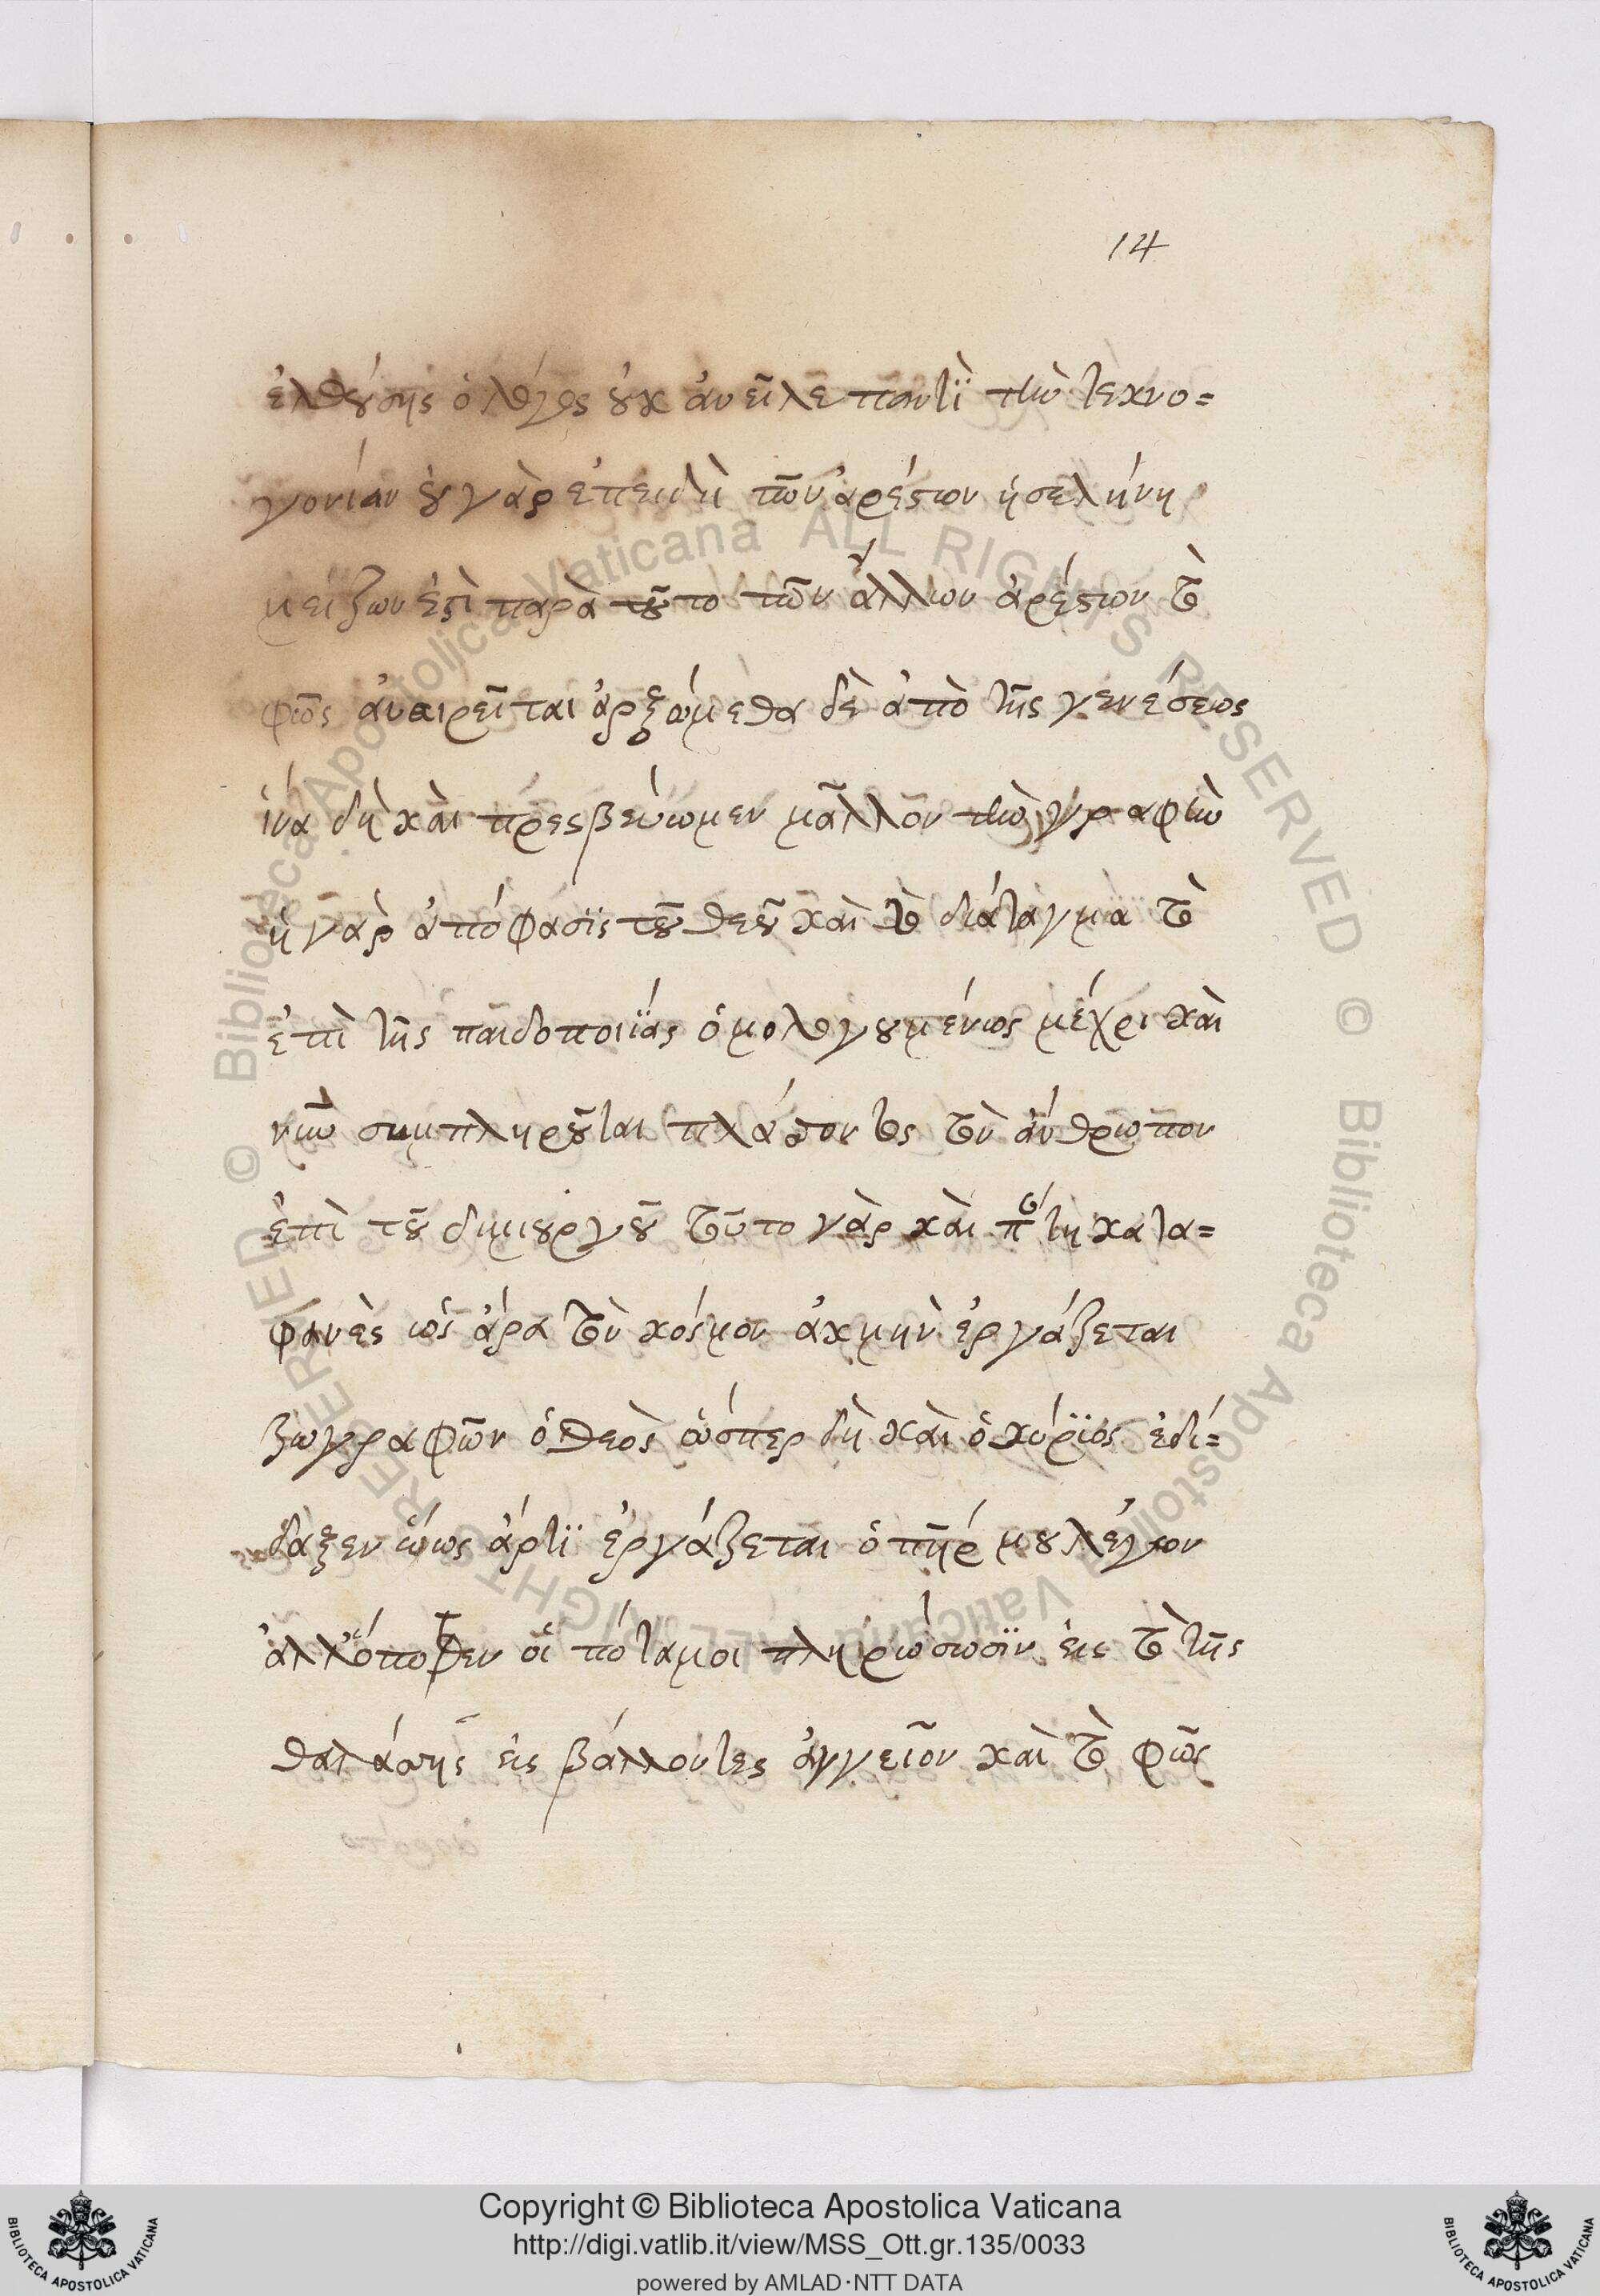 14
ἐλθούσης ὁ λόγος οὐκ ἀνεῖλε παντὶ τὴν τεκνο=
γονίαν οὐ γὰρ ἐπειδὴ τῶν ἀρέστων ἡ σελήνη
μείζων ἐστὶ παρὰ τοῦτο τῶν ἄλλων ἀρέστων τὸ
φῶς ἀναιρεῖται ἀρξώμεθα δὲ ἀπὸ τῆς γενέσεως
ἵνα δὴ καὶ πρεσβεύωμεν μᾶλλον τὴν γραφὴν
ἡ γὰρ ἀπόφασϊς τοῦ θεοῦ καὶ τὸ διάταγμα τὸ
ἐπὶ τῆς παιδοποιΐας ὁμολογουμένως μέχρι καὶ
νῦν συμπληροῦται πλάττοντος τὸν ἄνθρωπον
ἐπὶ τοῦ διμιουργοῦ τοῦτο γὰρ καὶ
φανὲς ὡς ἄρα τὸν κόσμον ἀκμὴν ἐργάζεται
ζωγραφῶν ὁ θεὸς ὥσπερ δὴ καὶ ὁ κύριος ἐδί=
δαξεν ἕως ἄρτϊ ἐργάζεται ὁ πηρ μου λέγων
ἀλλ' ὁπόθεν οἱ πόταμοι πληρώσωσϊν εἰς τὸ τῆς
θαλάττης εἰς βάλλοντες ἀγγεῖον καὶ τὸ φῶς
Copyright © Biblioteca Apostolica Vaticana
http://digi.vatlib.it/view/MSS_Ott.gr.135/0033
powered by AMLAD·NTT DATA
BIBLIOTECA APOSTOLICA VATICANA
BIBLIOTECA APOSTOLICA VATICANA
© Biblioteca Apostolica Vaticana ALL RIGHTS RESERVED © Biblioteca Apostolica Vaticana ALL RIGHTS RESERVED